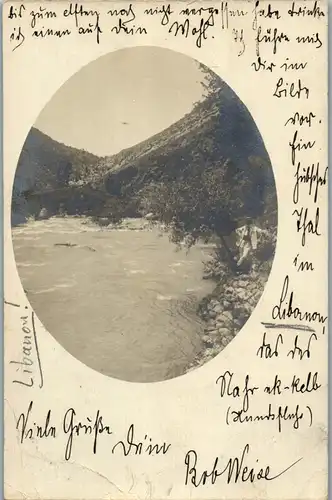 bis zum elften noch nicht vergessen habe trinke
ich einen auf Dein Wohl. Ich führe mit
Dir im
Bilde
vor.
Ein
hübsches
Thal
im
Libanon,
das des
Nahr ek-kelb
(Hundsfluß)
Libanon!
Viele Grüße Dein
Bob Weise